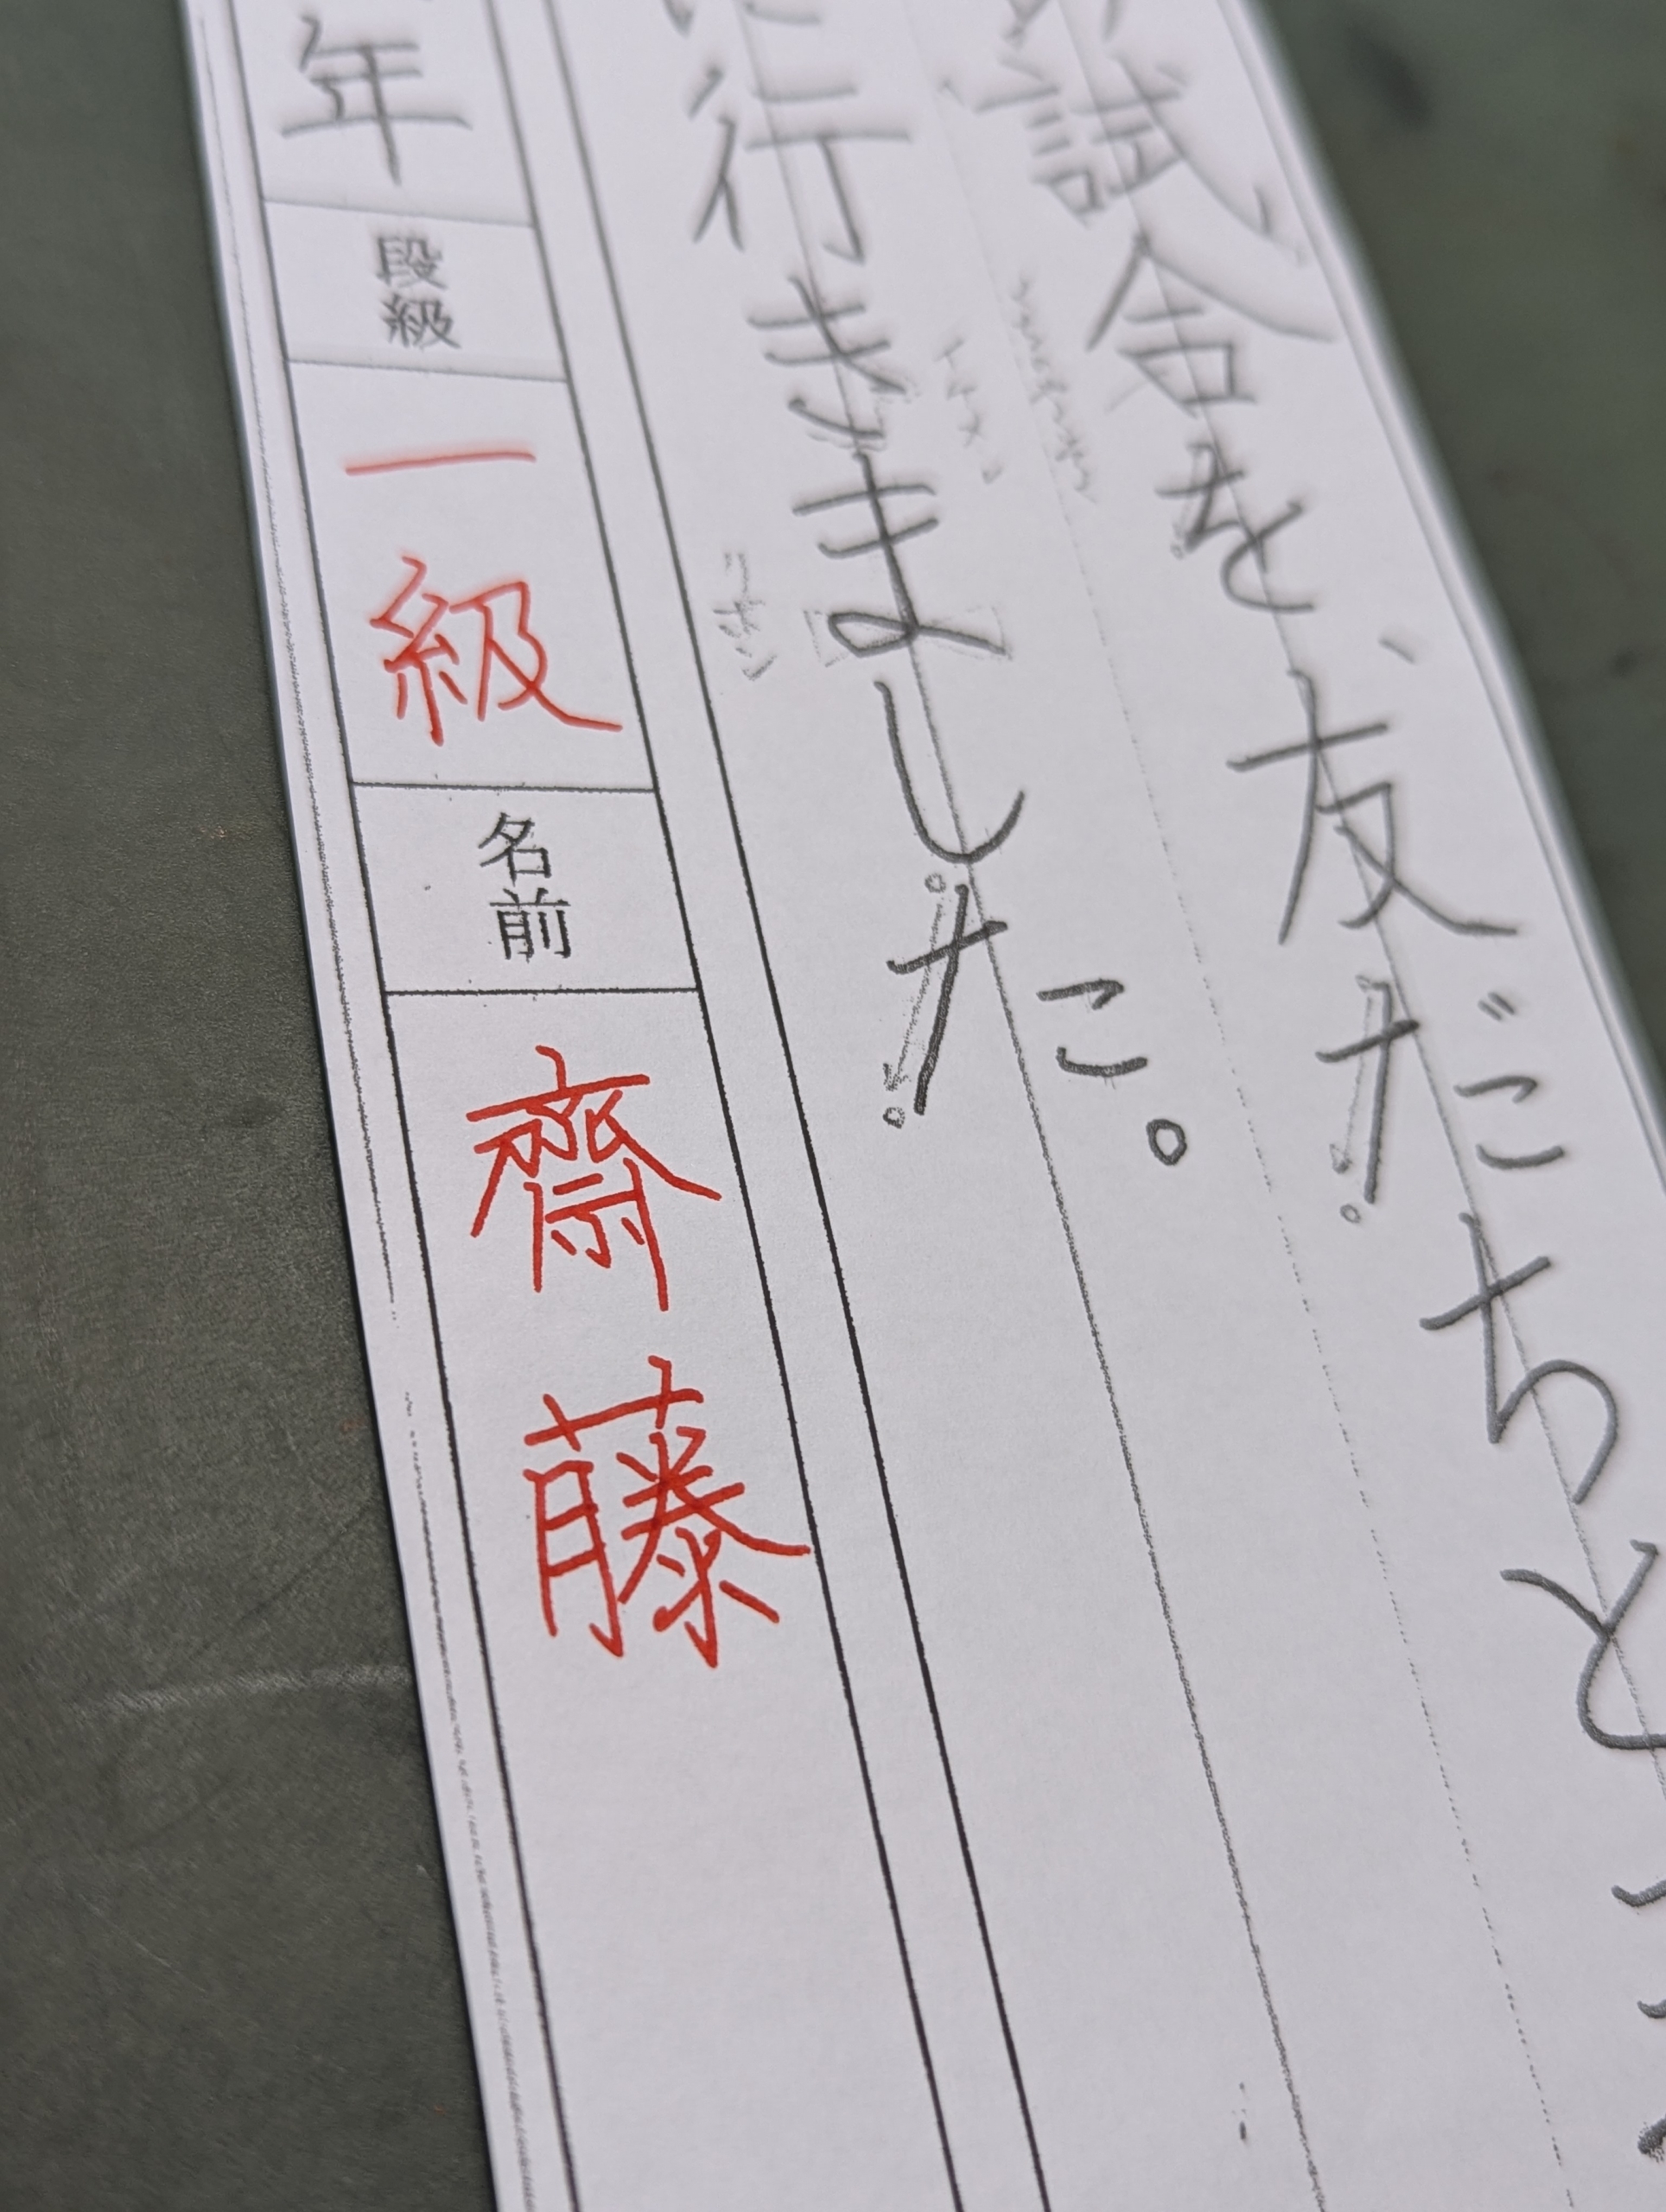 試合を、友だちと
に行きました。
リボン
年 段級 一級 名前 齋藤